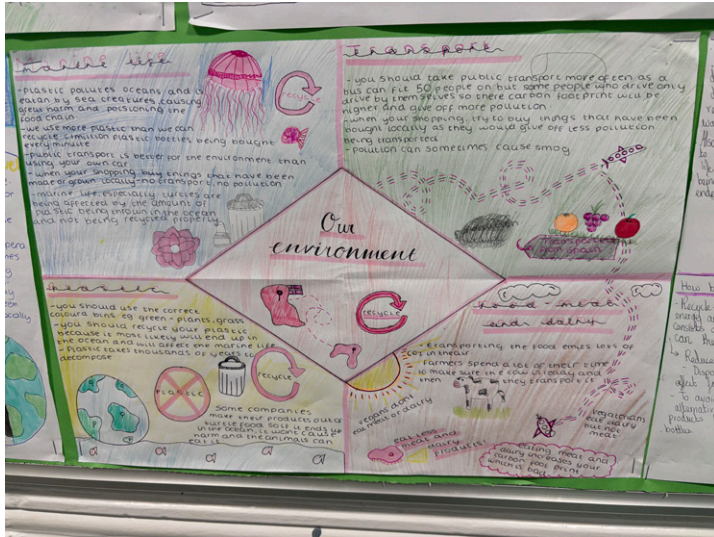 marine life
-plastic pollutes oceans and is
eatan by sea creatures, causing
great harm and poisoning the
food chain
-we use more plastic than we can
recycle. 1 million plastic bottles being bought
every minute
-public transport is better for the environment than
using your own car
-when your shopping buy things that have been
made or grown locally-no transport, no pollution
-marine life, especially turtles are
being affected by the amount of
plastic being thrown in the ocean
and not being recycled properly.
recycle
transport
-you should take public transport more often as a
bus can fit 50 people on but some people who drive only
drive by themselves so there carbon footprint will be
higher and give off more pollution
-when your shopping, try to buy things that have been
bought locally as they would give off less pollution
being transported
-pollution can sometimes cause smog
transported
from spain
Our
environment
RECYCLE
plastic
-you should use the correct
colourd bins eg green-plants, grass
-you should recycle your plastic
because it most likely will end up in
the ocean and will affect the marine life
-Plastic takes thousands of years to
decompose
PLASTIC
recycle
Some companies
make their products out of
turtle food so if it ends up
in the ocean, it won't cause
harm and the animals can
eat it
food-meat
and dairy
-transporting the food emits lots of
CO2 in the air
Farmers spend a lot of their time
to make sure the cow is ready and
then they transport it
vegans dont
eat meat or dairy
vegetarians
eat dairy
but not
meat
eat less
meat and
dairy
products!
eating meat and
dairy increases your
carbon foot print
which is bad
How
-Recycle
energy
can
↳ Reduce
to
products
bottles